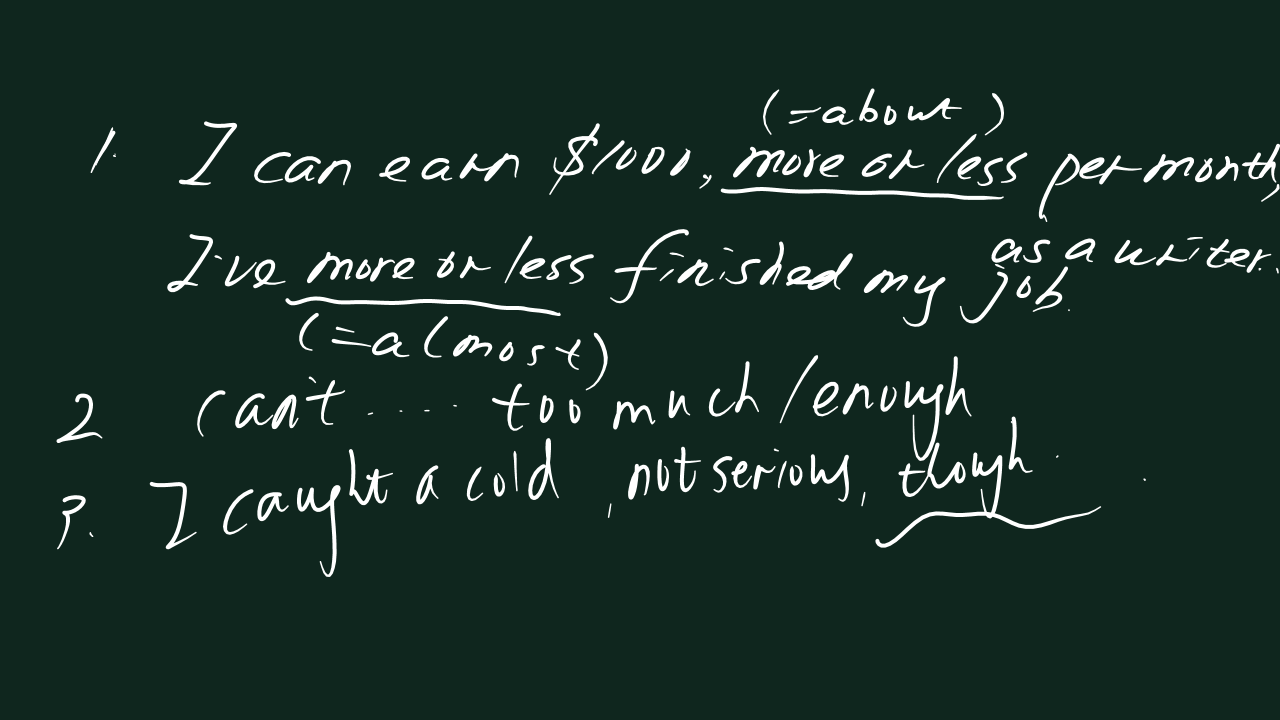 (=about)
1. I can earn $1000, more or less per month,
as a writer.
I've more or less finished my job.
(=almost)
2 can't ..... too much/enough
3. I caught a cold, not serious, though.